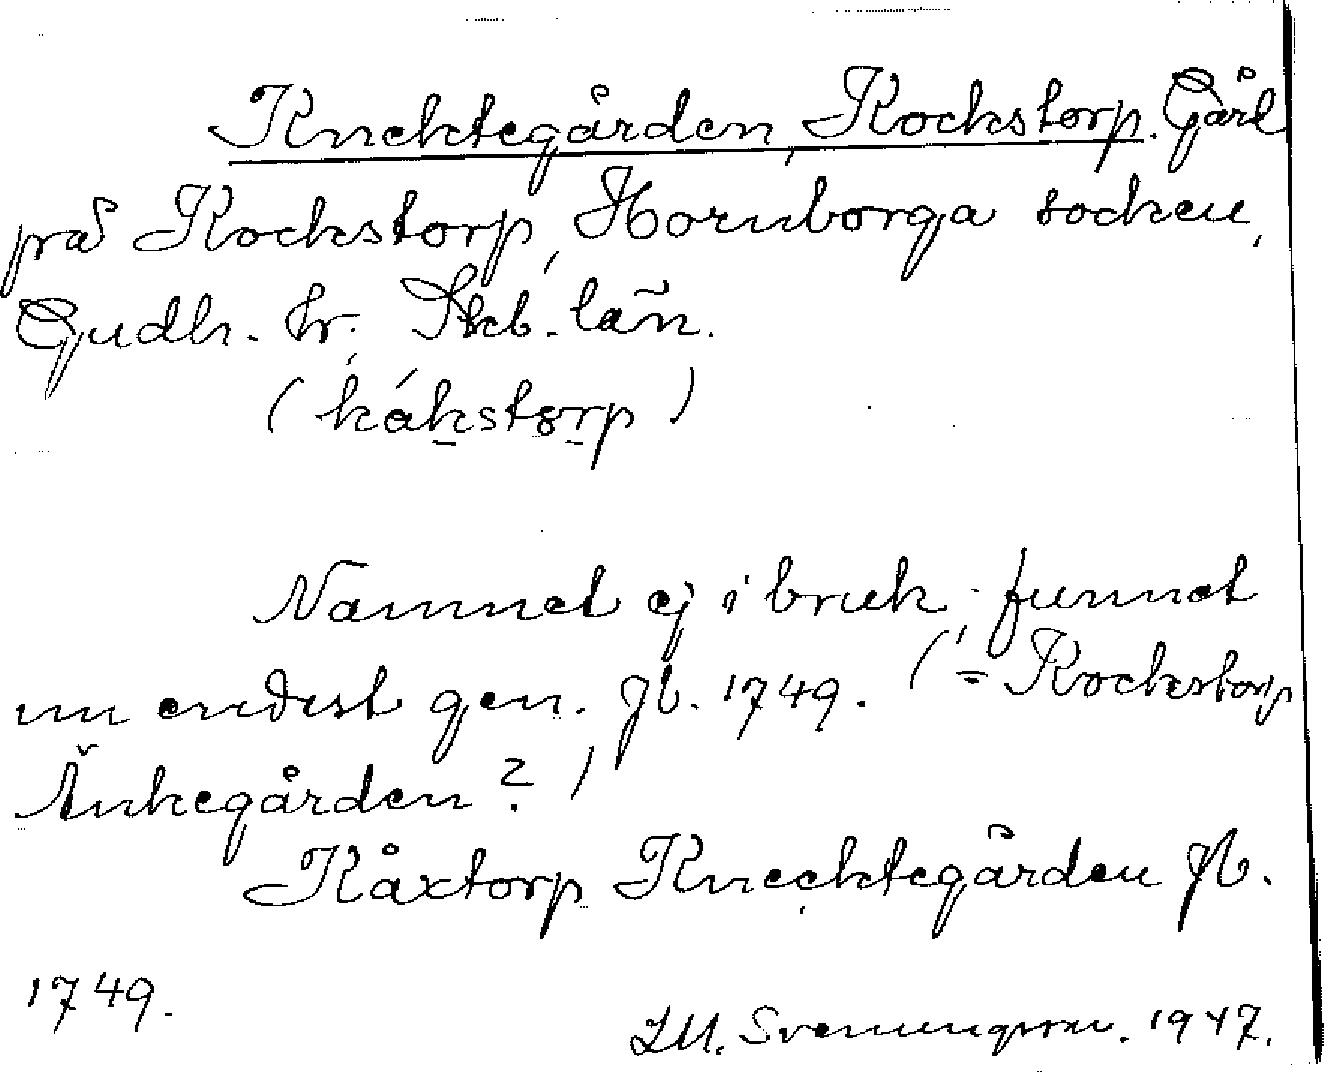 Knektegården, Kockstorp. Gård
på Kockstorp, Hornborga socken,
Gudh. hr. Skb. län.
(kákstorp)
Namnet ej i bruk, funnet
nu endast gen. Jb. 1749. (= Kockstorp
Änkegården?)
Kåxtorp Knecktegården Jb.
1749.
Svenungsson. 1947.